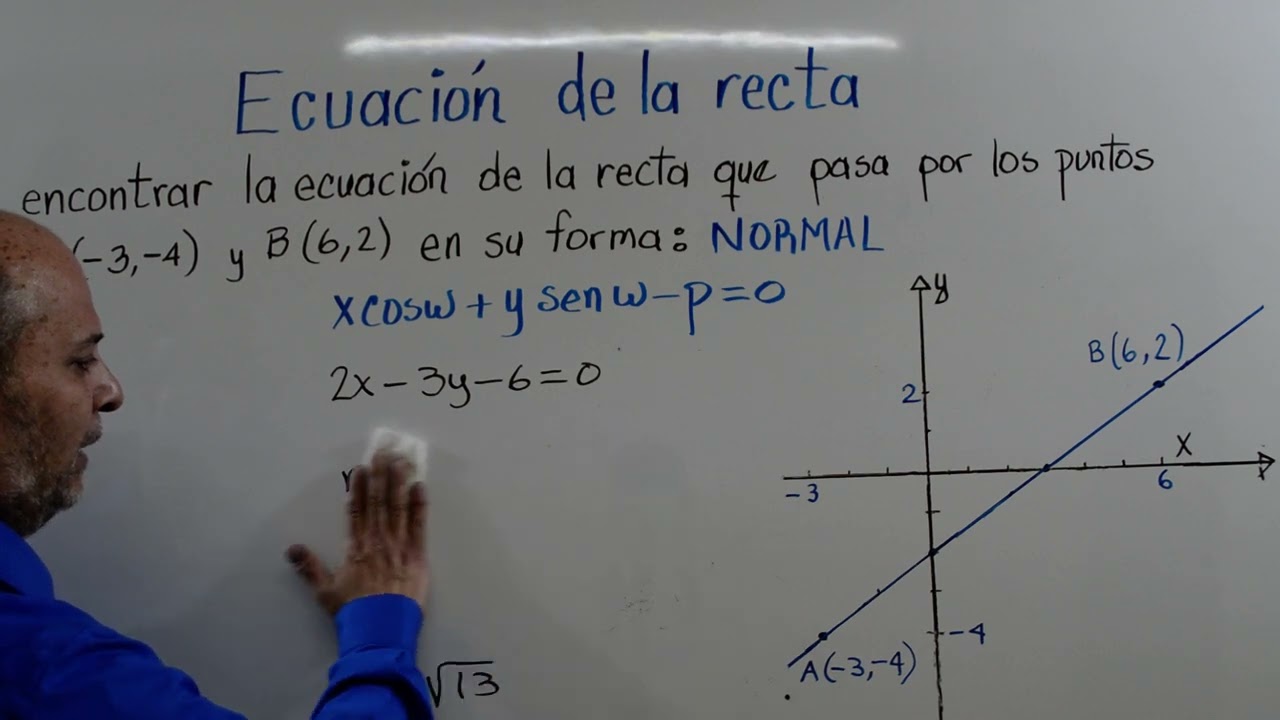 Ecuación de la recta
encontrar la ecuación de la recta que pasa por los puntos
(-3,-4) y B(6,2) en su forma: NORMAL
x cosw + y senw - p = 0
2x - 3y - 6 = 0
√13
y
B(6,2)
2
X
-3
6
-4
A(-3,-4)